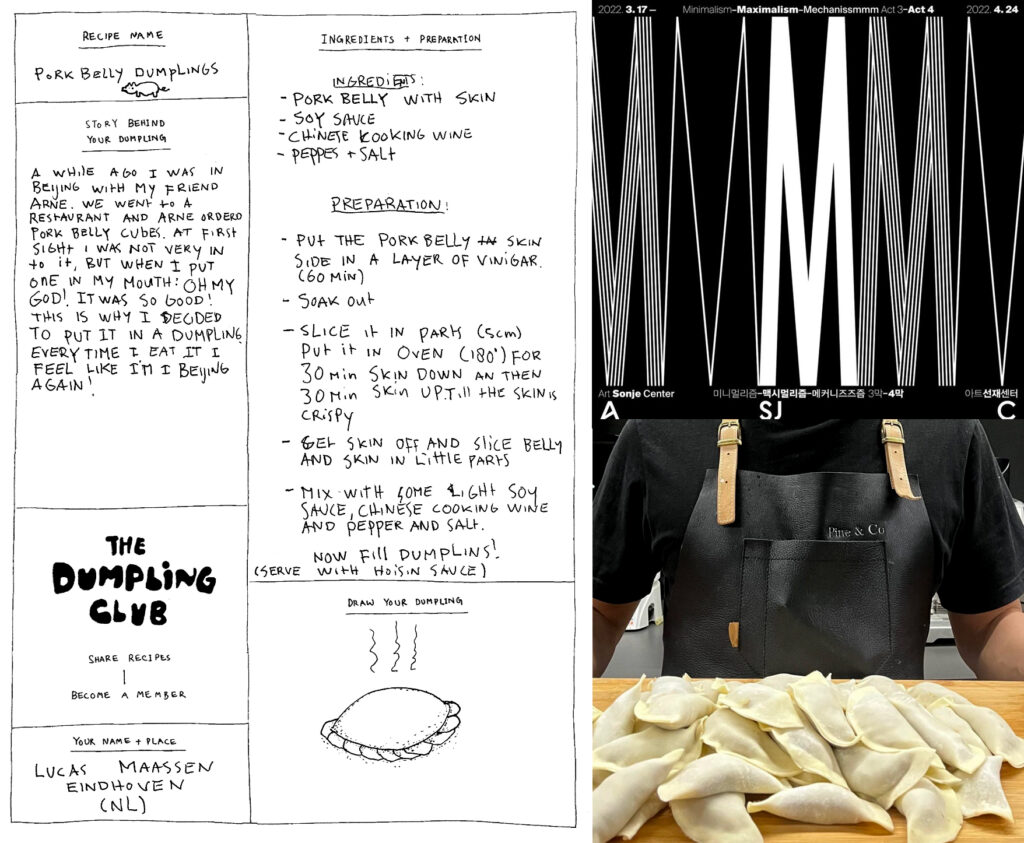 RECIPE NAME
PORK BELLY DUMPLINGS
STORY BEHIND
YOUR DUMPLING
A WHILE AGO I WAS IN
BEIJING WITH MY FRIEND
ARNE. WE WENT TO A
RESTAURANT AND ARNE ORDERD
PORK BELLY CUBES. AT FIRST
SIGHT I WAS NOT VERY IN
TO IT, BUT WHEN I PUT
ONE IN MY MOUTH: OH MY
GOD! IT WAS SO GOOD!
THIS IS WHY I DECIDED
TO PUT IT IN A DUMPLING
EVERY TIME I EAT IT I
FEEL LIKE I'M I BEIJING
AGAIN!
THE
DUMPLING
CLUB
SHARE RECIPES
BECOME A MEMBER
YOUR NAME + PLACE
LUCAS MAASSEN
EINDHOVEN
(NL)
INGREDIENTS + PREPARATION
INGREDIENTS:
- PORK BELLY WITH SKIN
- SOY SAUCE
- CHINESE COOKING WINE
- PEPPES + SALT
PREPARATION:
- PUT THE PORK BELLY IN SKIN
SIDE IN A LAYER OF VINIGAR.
(60 MIN)
- SOAK OUT
- SLICE IT IN PARTS (5cm)
PUT IT IN OVEN (180°) FOR
30 MIN SKIN DOWN AN THEN
30 MIN SKIN UP. TILL THE SKIN IS
CRISPY
- GET SKIN OFF AND SLICE BELLY
AND SKIN IN LITTLE PARTS
- MIX WITH SOME LIGHT SOY
SAUCE, CHINESE COOKING WINE
AND PEPPER AND SALT.
NOW FILL DUMPLINS!
(SERVE WITH HOISIN SAUCE)
DRAW YOUR DUMPLING
2022. 3. 17 – Minimalism–Maximalism–Mechanissmmm Act 3–Act 4 2022. 4. 24
M M M
Art Sonje Center 미니멀리즘–맥시멀리즘–메커니즈즈즘 3막–4막 아트선재센터
A SJ C
Pine & Co